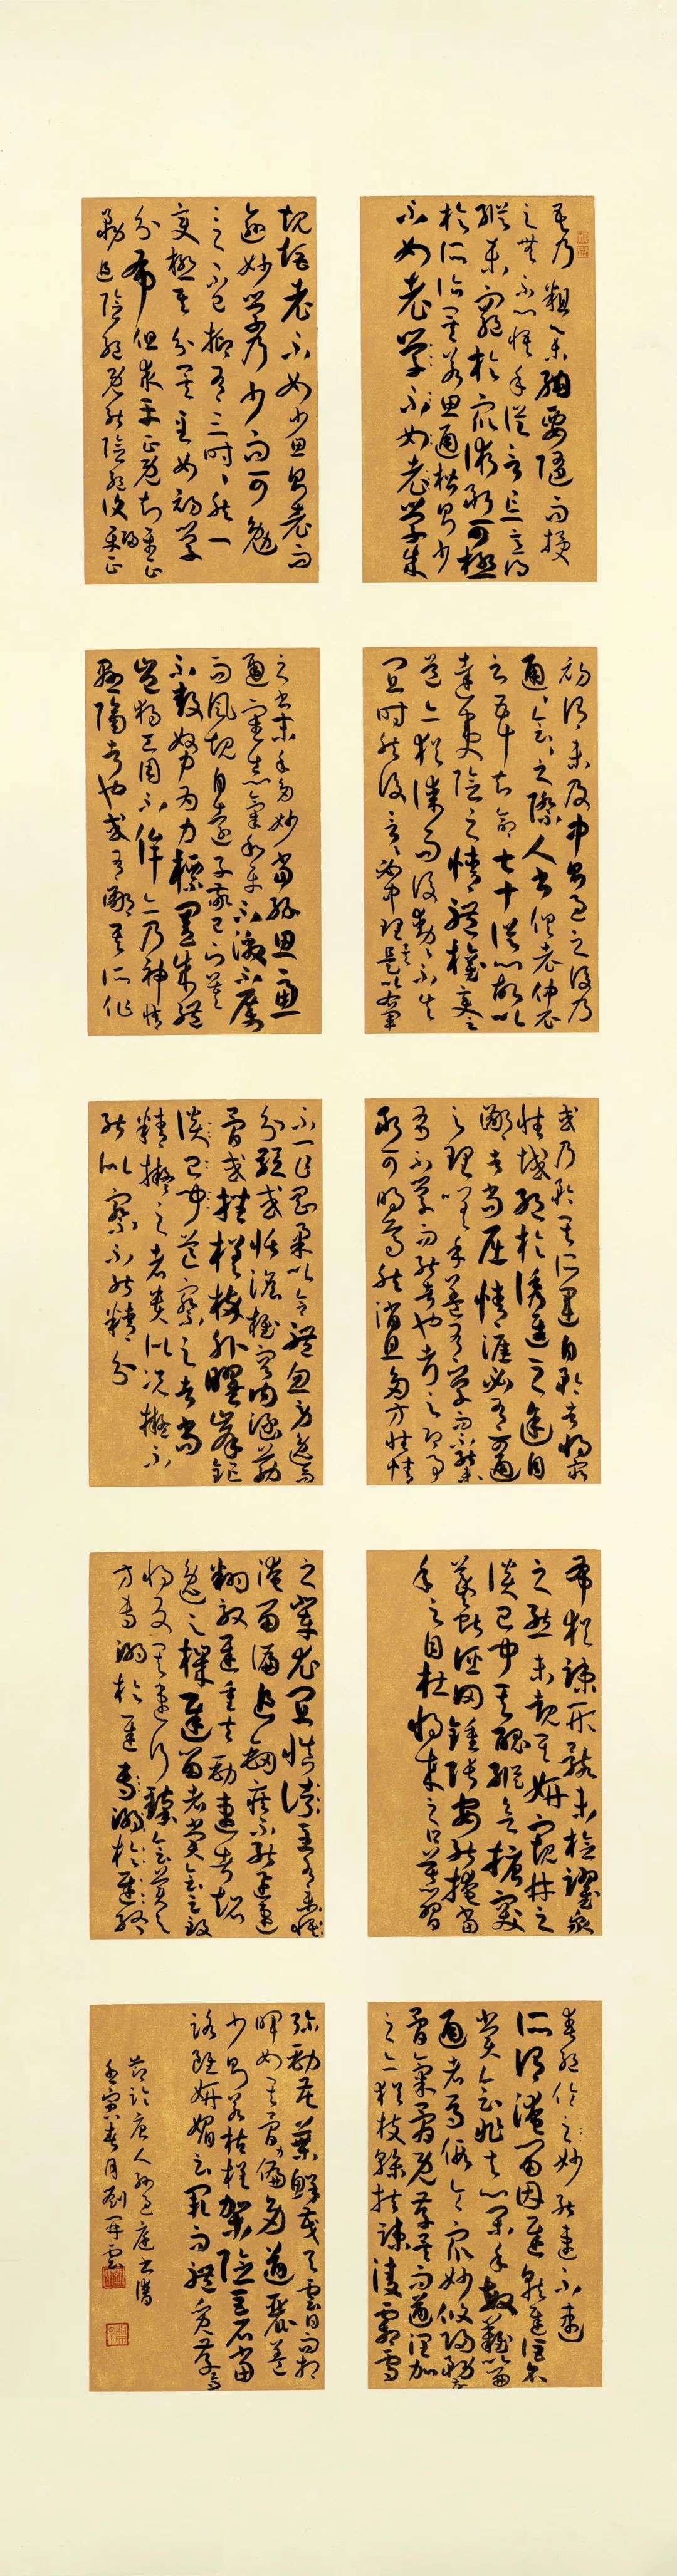 吾乃粗舉綱要隨而授
之無不心悟手從言忘意得
縱未窮於眾術斷可極
於所詣矣若思通楷則少
不如老學不如老學成
規矩老不如少思則老而
逾妙學乃少而可勉
之不已抑有三時時然一
變極其分矣至如初學
分布但求平正既知平正
務追險絕既能險絕復歸平正
初謂未及中則過之後乃
通通會會之際人書俱老仲尼
云五十知命七十從心故以
達夷險之情體權變之
道亦猶謀而後動動不失
宜時然後言言必中理矣是以右軍
之書末年多妙當緣思慮
通審志氣和平不激不厲
而風規自遠子敬已下莫
不鼓努為力標置成體
豈獨工用不侔亦乃神情
懸隔者也或有鄙其所作
或乃矜其所運自矜者將窮
性域絕於誘進之途自
鄙者尚屈情涯必有可通
之理嗟乎蓋有學而不能未
有不學而能者也考之即事
斷可明焉然消息多方性情
不一乍剛柔以合體忽勞逸而
分驅或恬澹雍容內涵筋
骨或挫槎枿外曜峯鉅
談已聞芒察之者尚
精擬之者貴似況擬不
能似察不能精分
布猶疎形骸未檢躍泉
之態未覩其妍窺井之
談已聞其醜縱欲搪突
羲獻誣罔鍾張安能掩當
年之目杜將來之口慕習
之輩尤宜慎諸至有未悟
淹留偏追勁疾不能迅速
翻效遲重夫勁速者超
逸之機遲留者賞會之致
將反其速行臻會美之
方專溺於遲專溺於遲終
爽絕倫之妙能速不速
所謂淹留因遲就遲詎名
賞會非夫心閑手敏難以兼
通者焉假令眾妙攸歸務存
骨氣骨既存矣而遒潤加
之亦猶枝幹扶疎凌霜雪
而彌勁花葉鮮茂與雲日而相
暉如其骨力偏多遒麗蓋
少則若枯槎架險巨石當
路雖妍媚云闕而體質存焉
節臨唐人孫過庭書譜
壬寅春月劉開雲